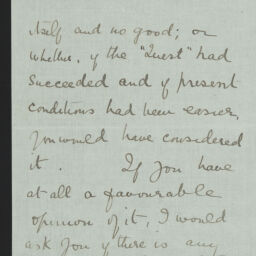 itself and no good; or
whether, if the "Quest" had
succeeded and if present
conditions had been easier,
you would have considered
it. If you have
at all a favourable
opinion of it, I would
ask you if there is any